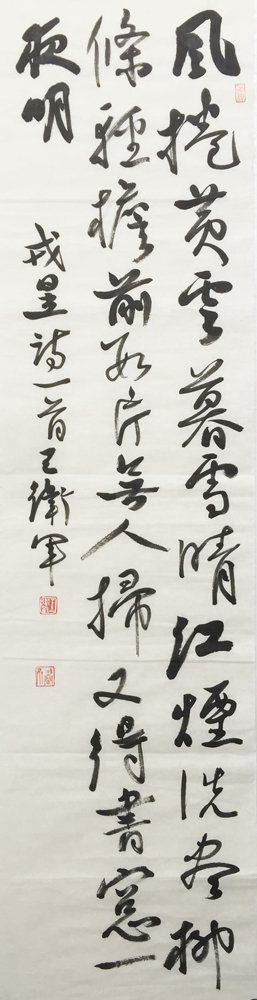 風捲黄雲暮雪晴江煙洗盡柳
條輕檐前數片無人掃又得書窻一
夜明
戎昱詩一首王衛軍